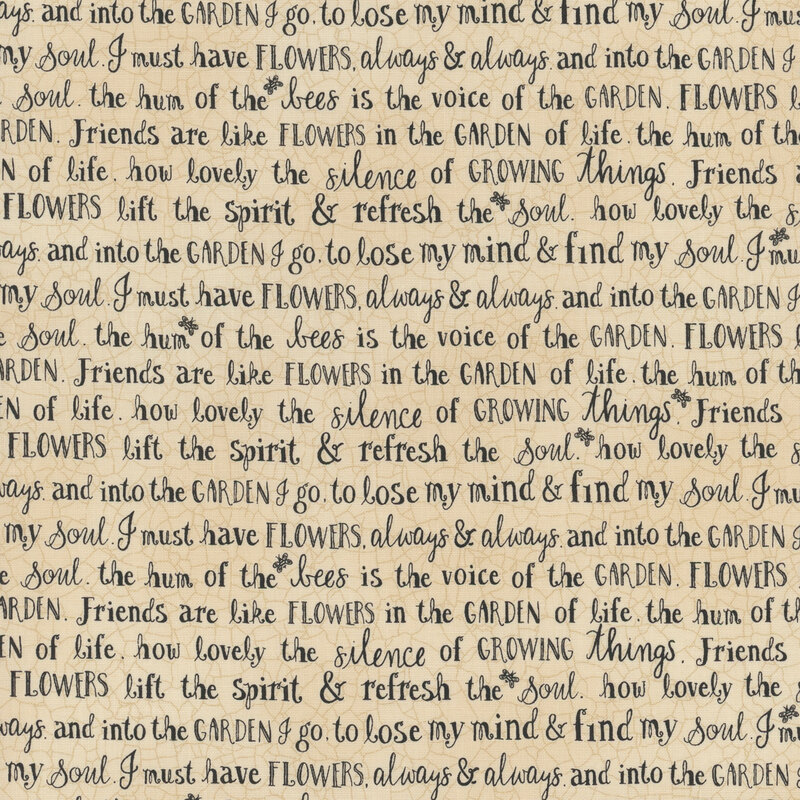 ays. and into the GARDEN I go, to lose my mind & find my Soul. I mus
my Soul. I must have FLOWERS, always & always. and into the GARDEN I
Soul. the hum of the bees is the voice of the GARDEN. FLOWERS l
RDEN. Friends are like FLOWERS in the GARDEN of life. the hum of th
N of life. how lovely the silence of GROWING things. Friends a
FLOWERS lift the spirit & refresh the Soul. how lovely the s
ays. and into the GARDEN I go, to lose my mind & find my Soul. I mu
my Soul. I must have FLOWERS, always & always. and into the GARDEN I
e Soul. the hum of the bees is the voice of the GARDEN. FLOWERS l
ARDEN. Friends are like FLOWERS in the GARDEN of life. the hum of th
EN of life. how lovely the silence of GROWING things. Friends
FLOWERS lift the spirit & refresh the Soul. how lovely the s
ways. and into the GARDEN I go, to lose my mind & find my Soul. I mu
my Soul. I must have FLOWERS, always & always. and into the GARDEN I
e Soul. the hum of the bees is the voice of the GARDEN. FLOWERS
ARDEN. Friends are like FLOWERS in the GARDEN of life. the hum of t
EN of life. how lovely the silence of GROWING things. Friends
FLOWERS lift the spirit & refresh the Soul. how lovely the s
ways. and into the GARDEN I go, to lose my mind & find my Soul. I mu
my Soul. I must have FLOWERS, always & always. and into the GARDEN